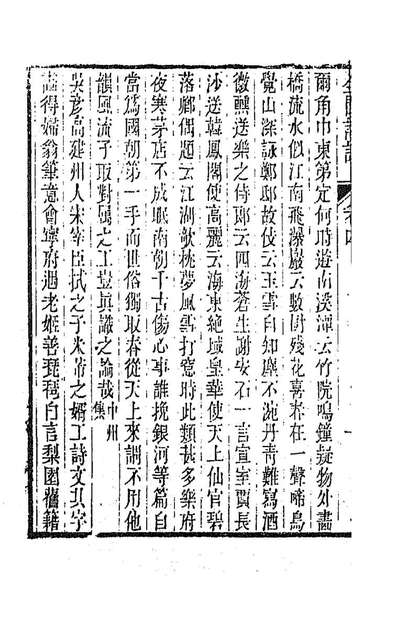 爾角巾東第定何時遊南溪潭云竹院鳴鐘疑物外畫
橋流水似江南飛瀑巖云數樹殘花喜春在一聲啼鳥
覺山深詠鄭邸故伎云玉雪自知塵不涴丹青難寫酒
微醺送樂之侍郎云四海蒼生謝安石一言宣室賈長
沙送韓鳳閣使高麗云海東絕域皇華使天上仙官碧
落鄉偶題云江湖欹枕夢風雪打窗時此類甚多樂府
夜寒茅店不成眠南朝千古傷心事誰挽銀河等篇自
當爲國朝第一手而世俗獨取春從天上來謂不用他
韻風流子取對屬之工豈眞識之論哉中州集
吳彥高建州人宋宰臣拭之子米芾之婿工詩文其字
畫得婦翁筆意會寧府遇老姬善琵琶自言梨園舊籍